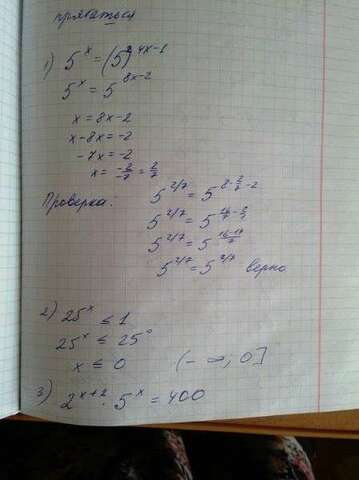 прятаться
1) 5^x = (5^2)^{4x-1}
5^x = 5^{8x-2}
x = 8x-2
x-8x = -2
-7x = -2
x = \frac{-2}{-7} = \frac{2}{7}
Проверка:
5^{2/7} = 5^{8·\frac{2}{7}-2}
5^{2/7} = 5^{\frac{16}{7}-\frac{2}{1}}
5^{2/7} = 5^{\frac{16-14}{7}}
5^{2/7} = 5^{2/7} верно
2) 25^x ≤ 1
25^x ≤ 25^0
x ≤ 0 (-∞; 0]
3) 2^{x+2} · 5^x = 400